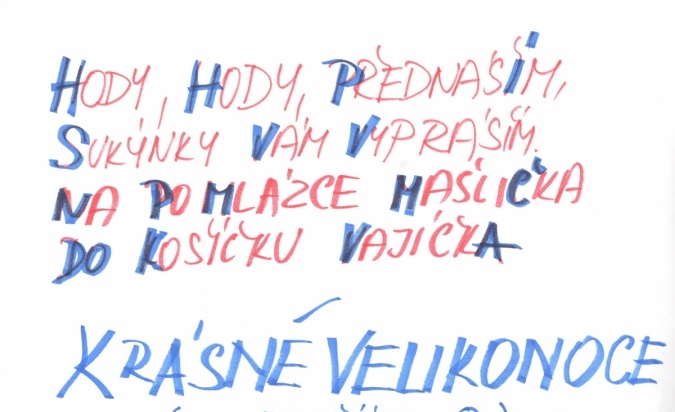 HODY, HODY, PŘEDNAŠÍM,
SUKÝNKY VÁM VYPRÁŠÍM.
NA POMLÁZCE MAŠLIČKA
DO KOŠÍČKU VAJÍČKA
KRÁSNÉ VELIKONOCE